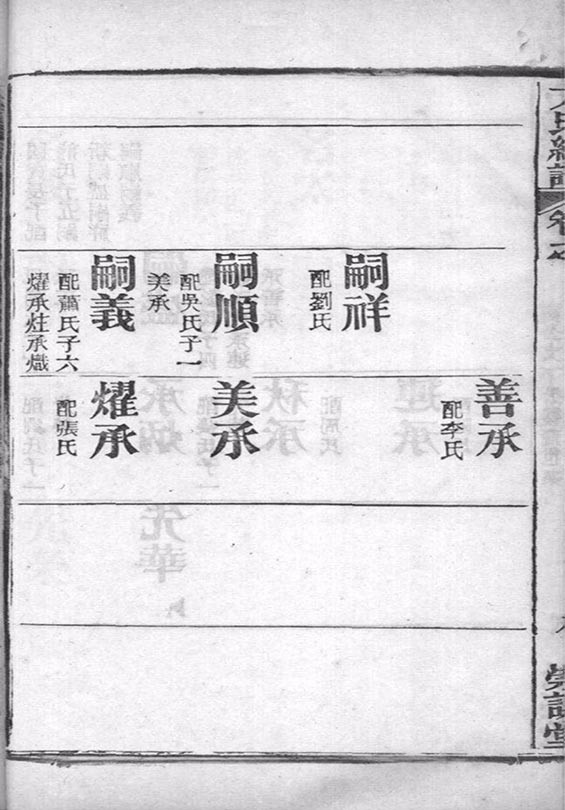 卷之
嗣祥
配劉氏
嗣順
配吳氏子一
美承
嗣義
配蕭氏子六
燿承灶承熾
善承
配李氏
美承
燿承
配張氏